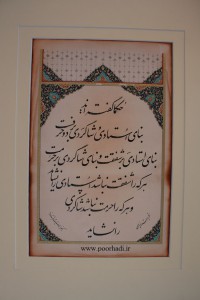 حکما گفته‌اند:
بنای استادی و شاگردی بر دو حرف
بنای استادی بر شفقت و بنای شاگردی بر حرمت
هر که را شفقت نباشد استادی را نشاید
و هر که را حرمت نباشد شاگردی
را نشاید
www.poorhadi.ir